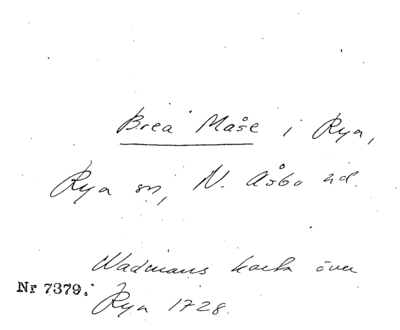 Brea Måse i Rya,
Rya sn, N. Åsbo hd.
Wadmans karta över
Nr 7379.
Rya 1728.